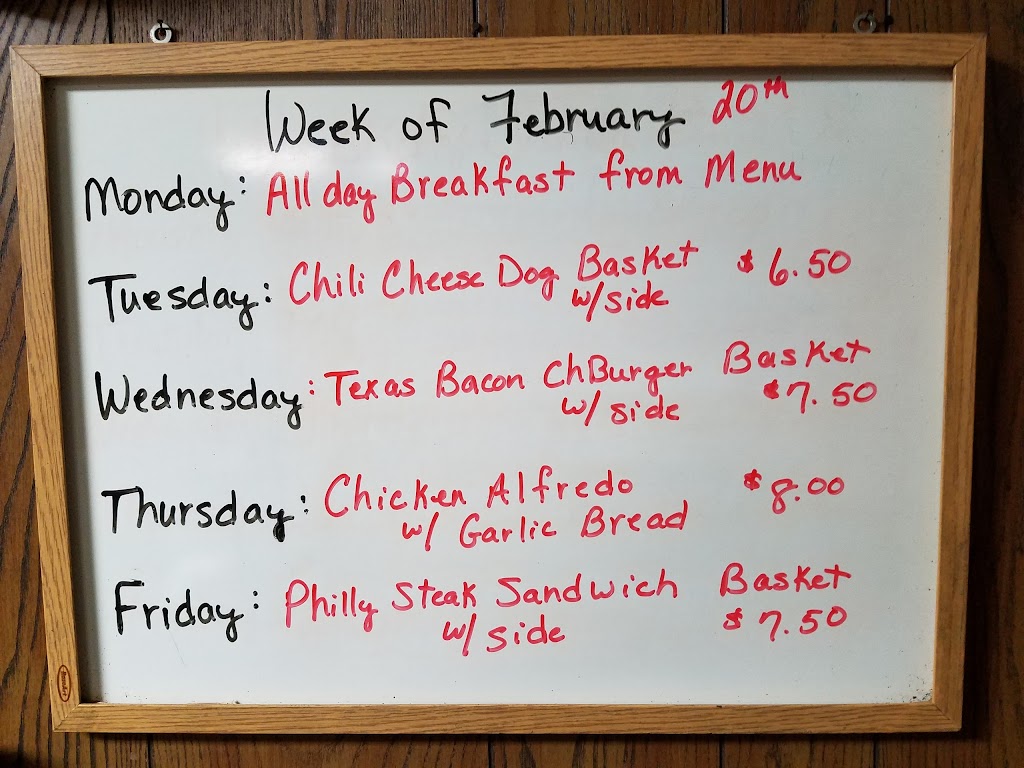 Week of February 20th
Monday: All day Breakfast from Menu
Tuesday: Chili Cheese Dog Basket $6.50
w/side
Wednesday: Texas Bacon ChBurger Basket
w/ side $7.50
Thursday: Chicken Alfredo $8.00
w/ Garlic Bread
Friday: Philly Steak Sandwich Basket
w/ side $7.50